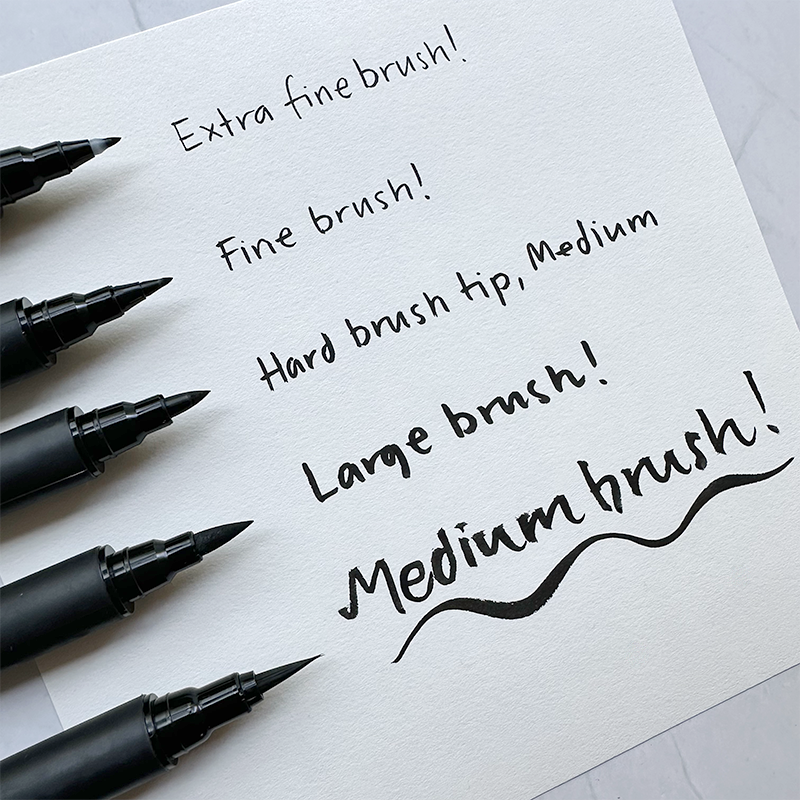 Extra fine brush!
Fine brush!
Hard brush tip, Medium
Large brush!
Medium brush!